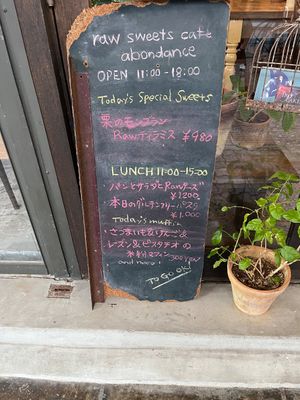 raw sweets cafe
abondance
OPEN 11:00-18:00
Today's Special Sweets
栗のモンブラン
Rawティラミス ¥980
LUNCH 11:00-15:00
パンとサラダとRawチーズ
¥1200
本日のグルテンフリーパスタ
¥1,000
Today's muffin
・さつまいも&りんご&
レーズン&ピスタチオの
米粉マフィン 300yen
and more!
TO GO OK!